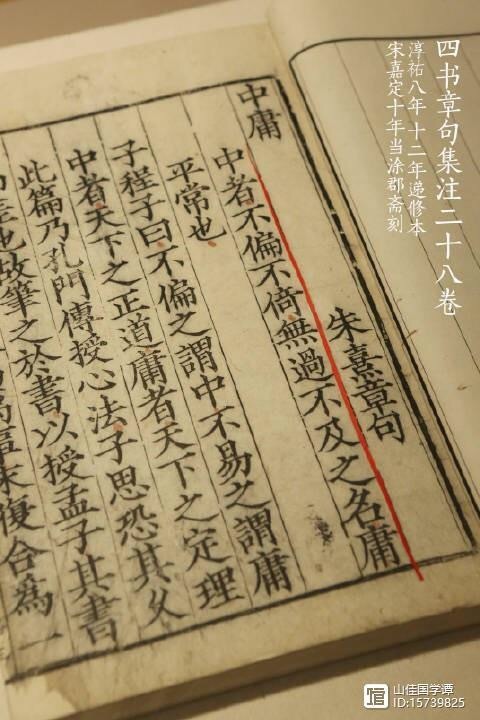 四书章句集注二十八卷
淳祐八年十二年递修本
宋嘉定十年当涂郡斋刻
中庸
朱熹章句
中者不偏不倚無過不及之名庸
平常也
子程子曰不偏之謂中不易之謂庸
中者天下之正道庸者天下之定理
此篇乃孔門傳授心法子思恐其久
差也故筆之於書以授孟子其書
末復合為一
山佳国学谭
ID:15739825